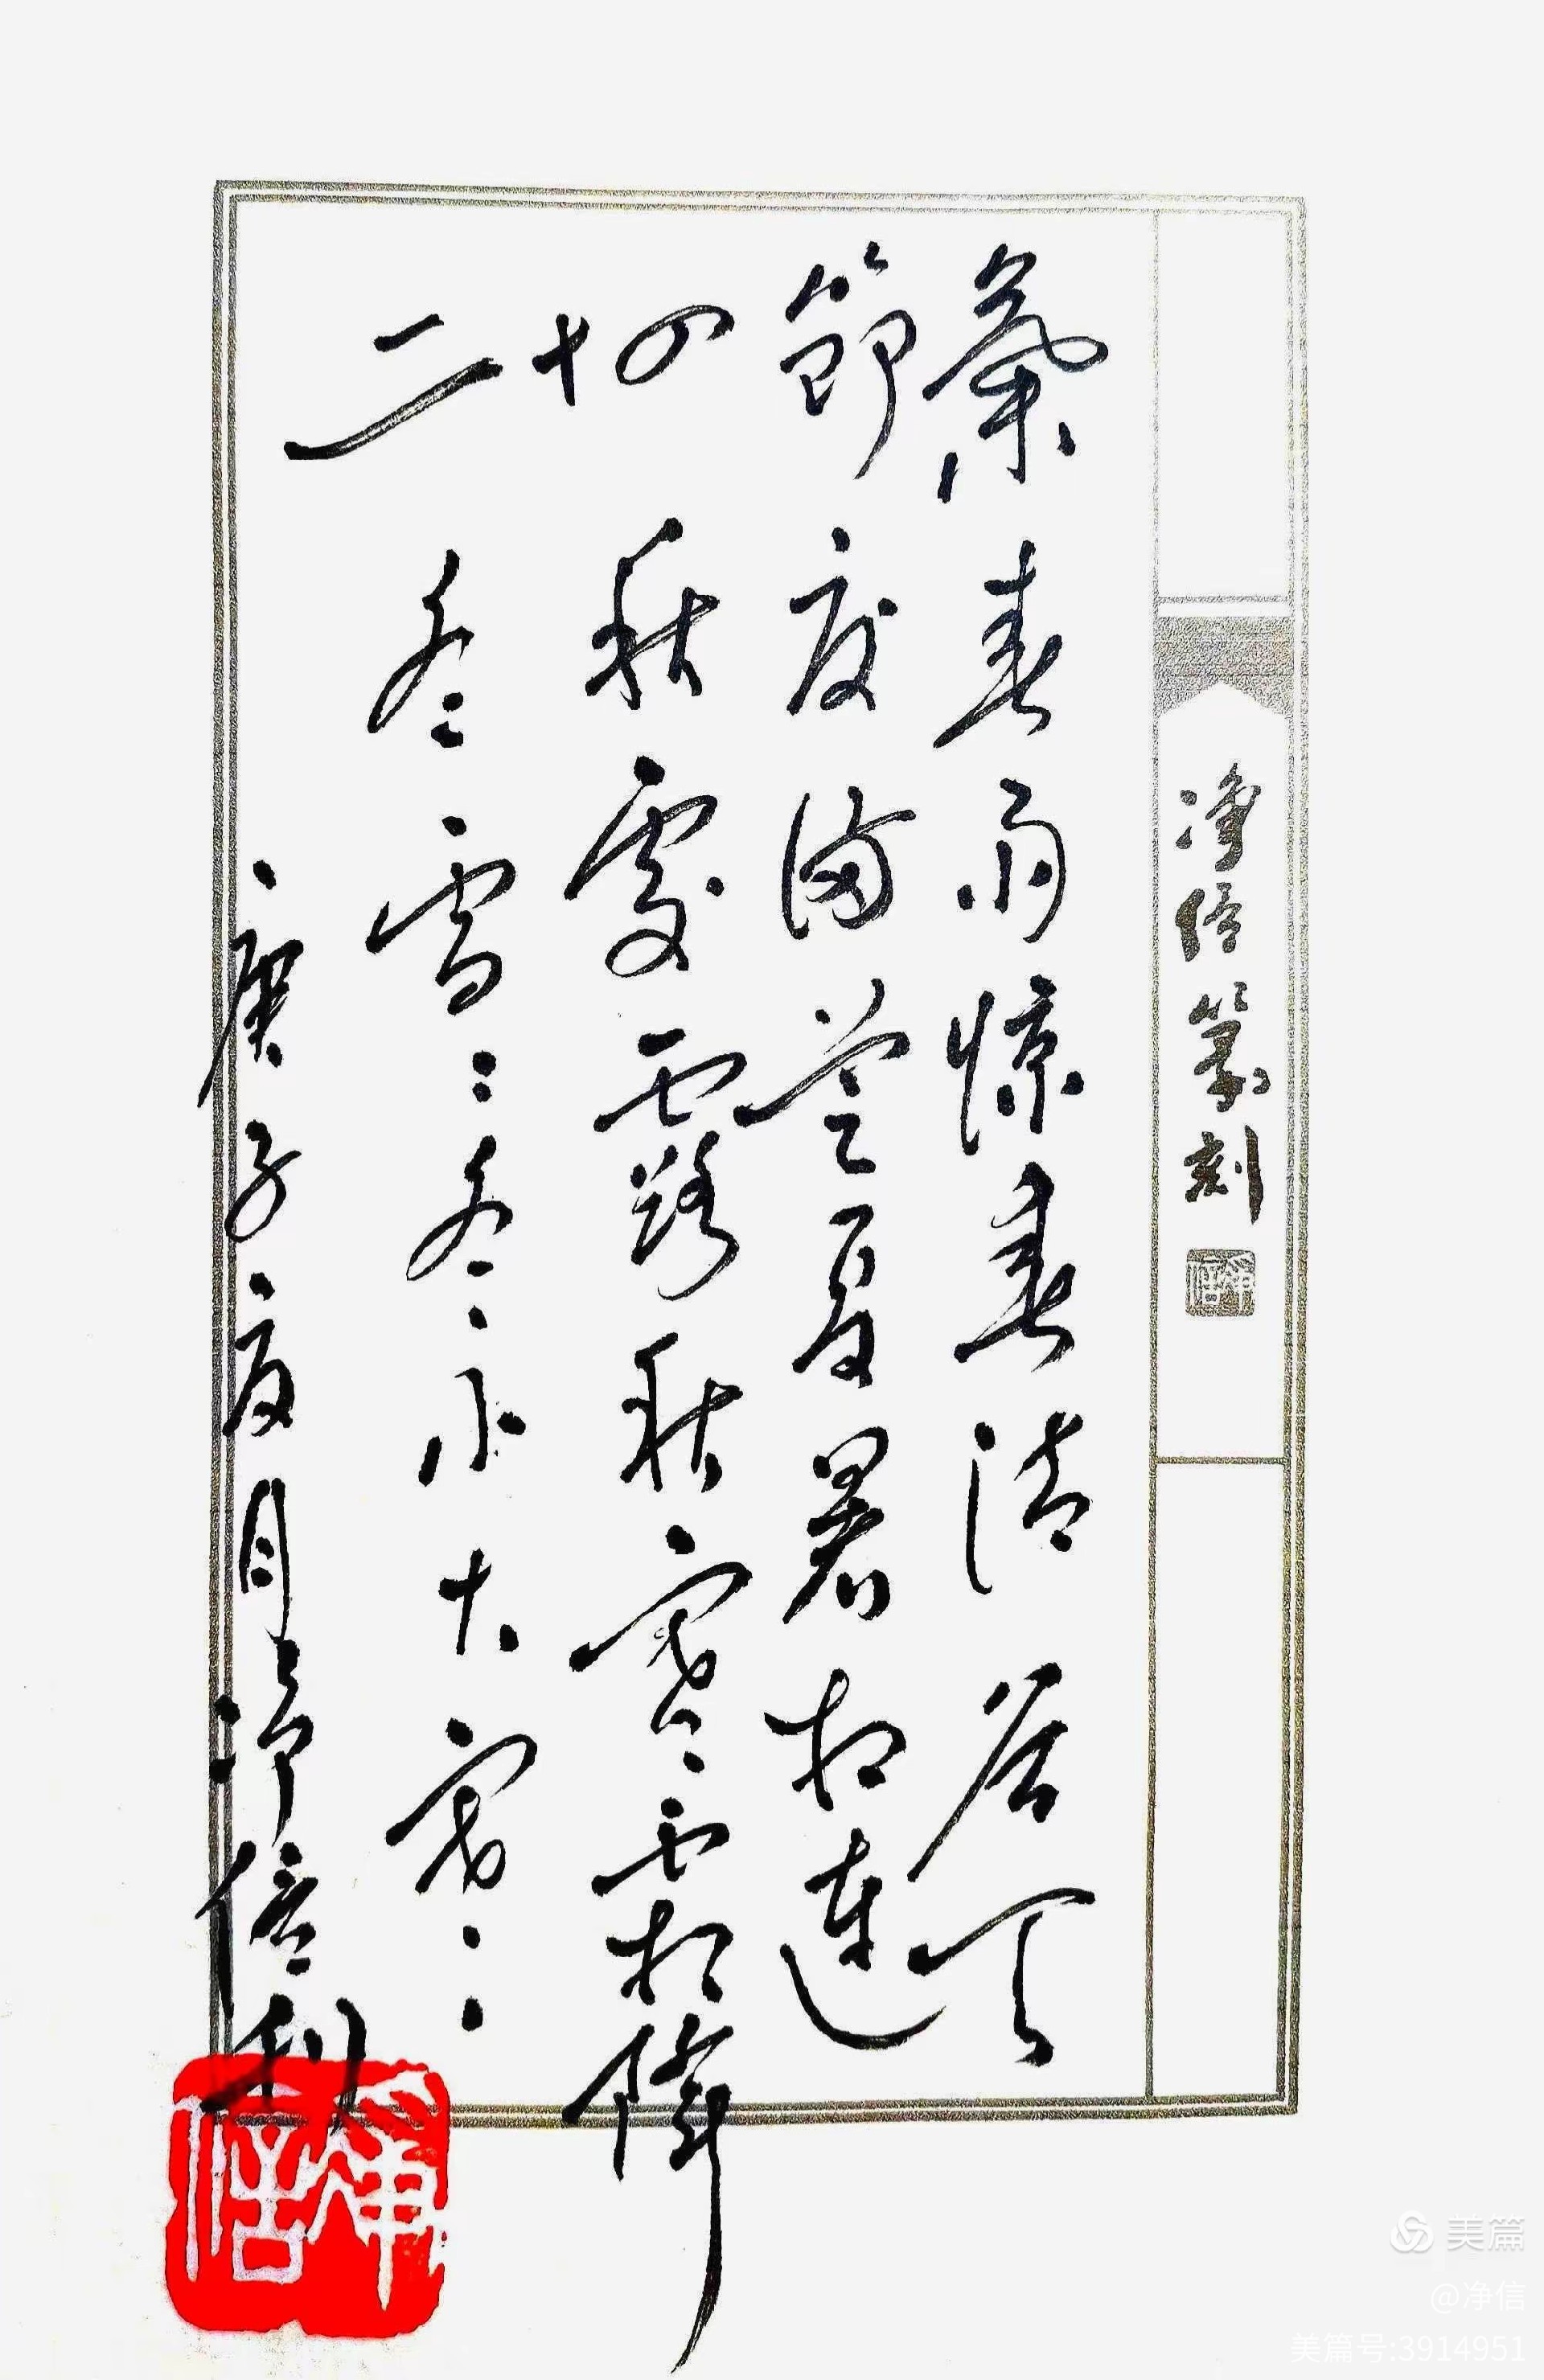 净信篆刻
净信
二十四節氣
春雨惊春清谷天
夏满芒夏暑相連
秋處露秋寒霜降
冬雪々冬小大寒々
庚子夏月净信
净信
美篇
@净信
美篇号:3914951